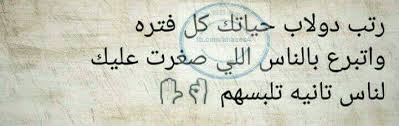 رتب دولاب حياتك كل فتره
واتبرع بالناس اللي صغرت عليك
لناس تانيه تلبسهم